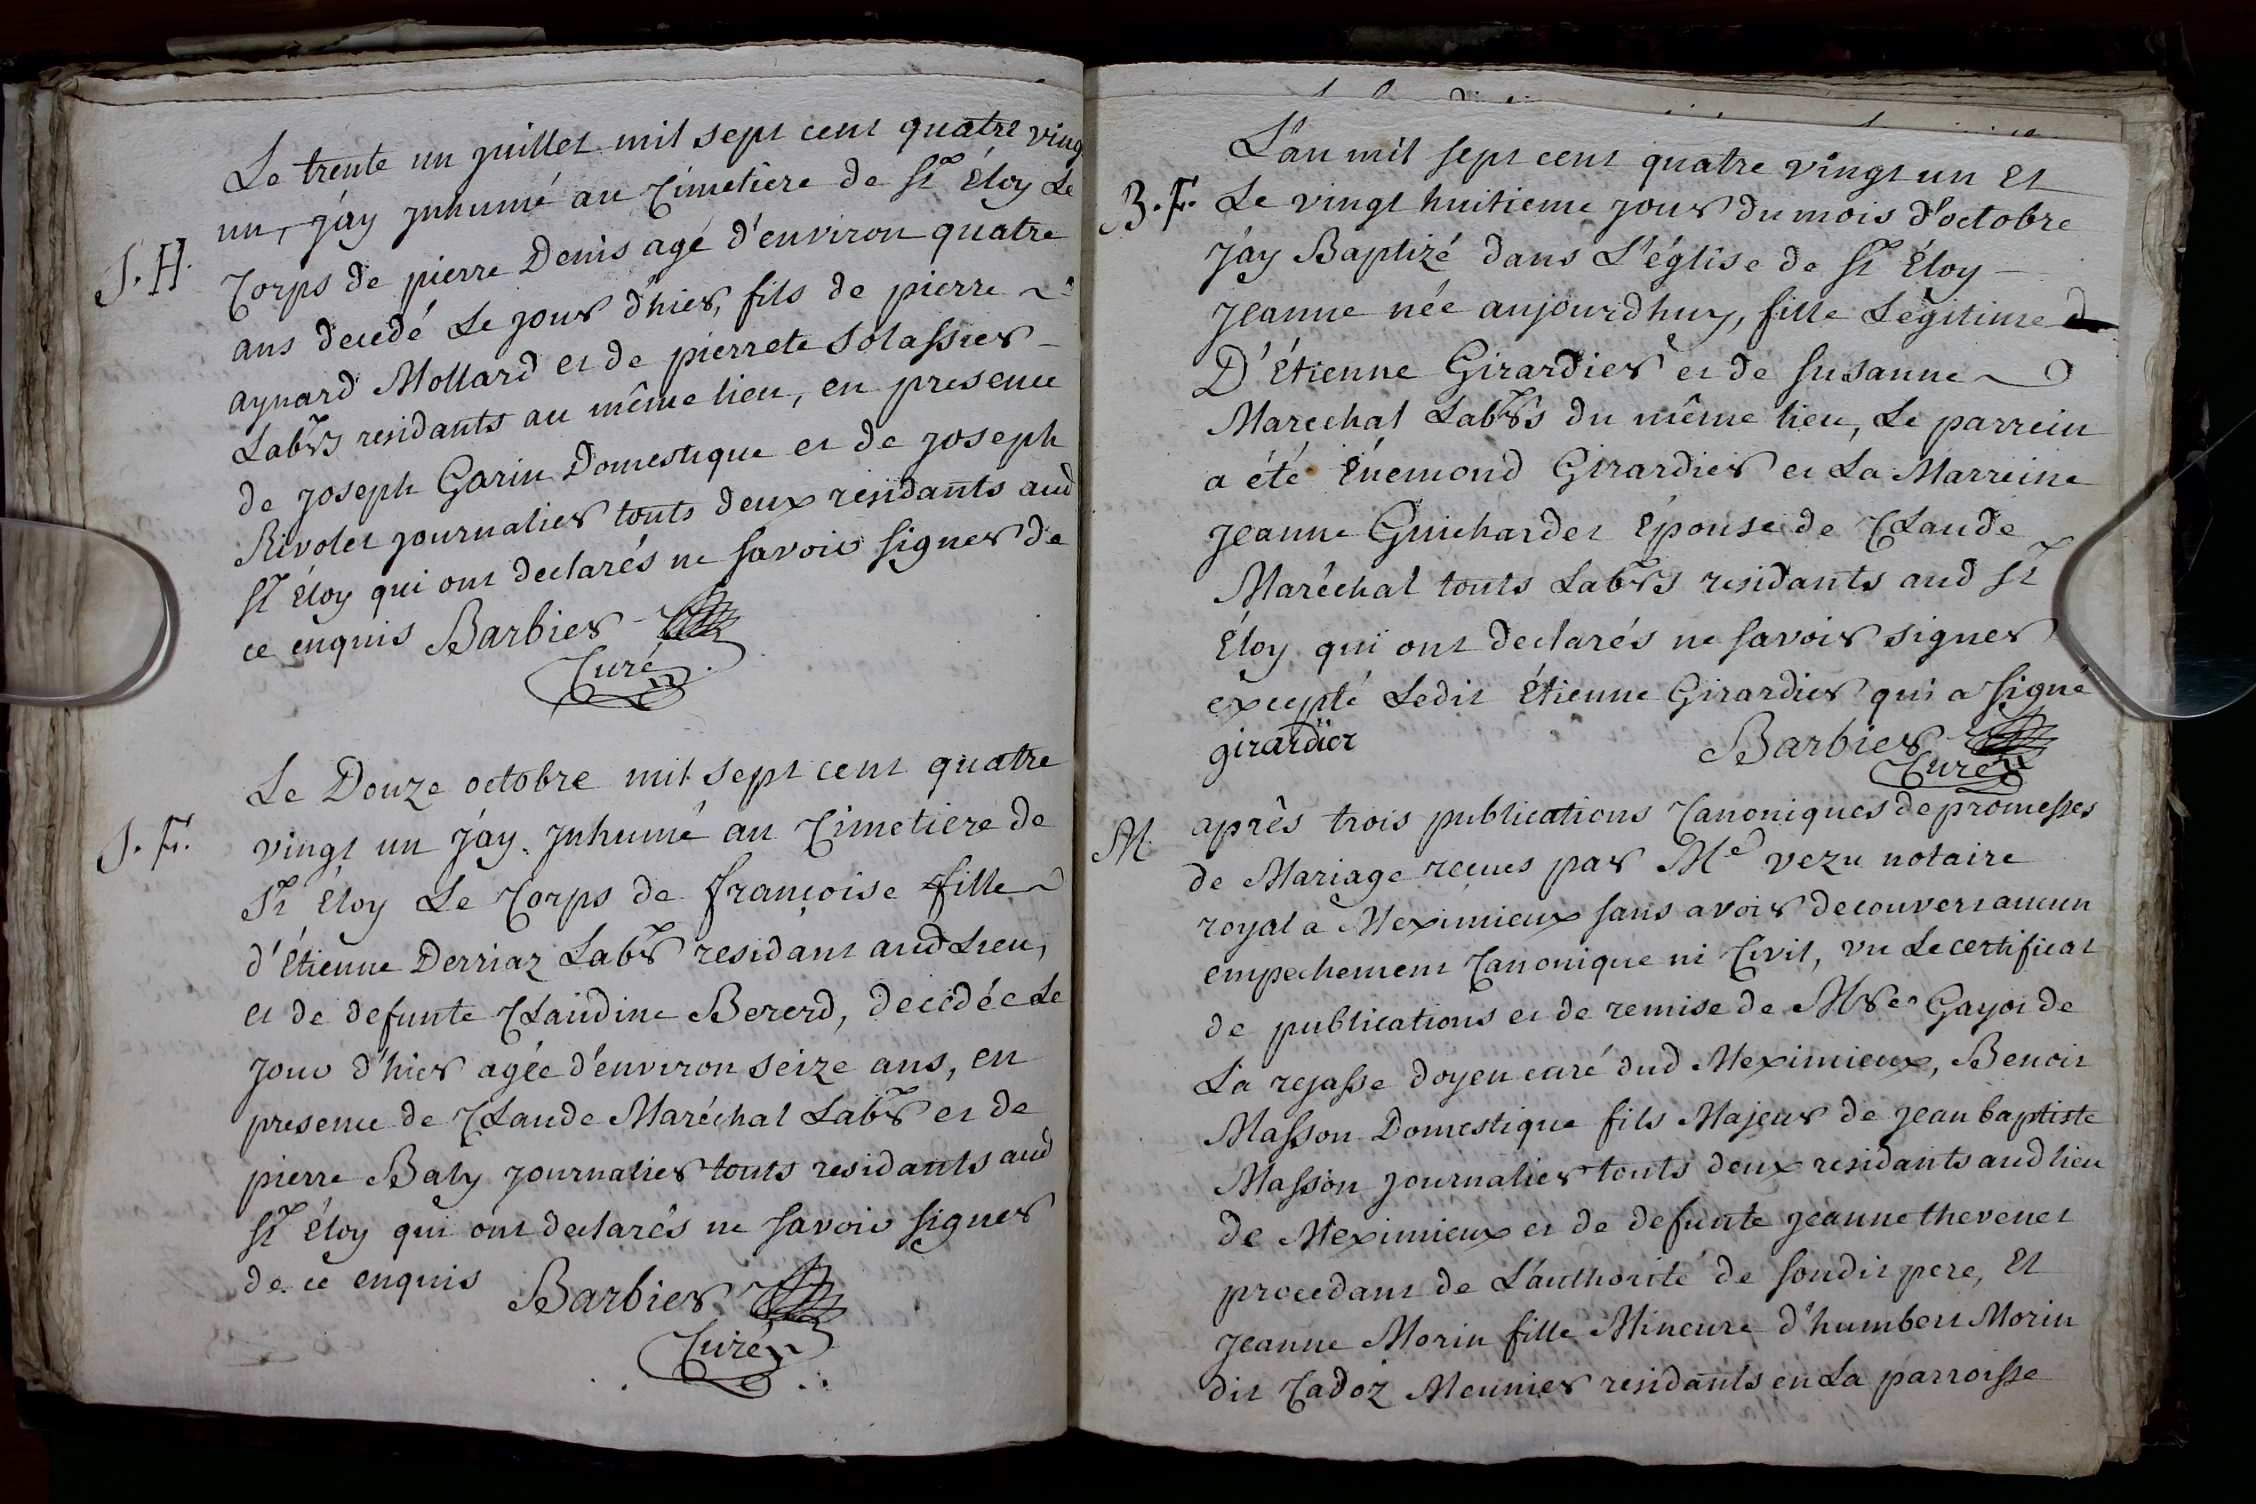 Le trente un juillet mil sept cent quatre ving
un, j'ay jnhumé au Cimetiere de St Éloy Le
J. H.
Corps de pierre Denis agé d'environ quatre
ans decedé Le jour d'hier, fils de pierre
aynard Mollard et de pierrete Solassier
Labrs residants au même lieu, en presence
de joseph Garin Domestique et de joseph
Rivolet journalier touts deux residants aud
St Éloy qui ont declarés ne savoir signer de
ce enquis Barbier
Curé
Le Douze octobre mil sept cent quatre
J. F.
vingt un j'ay jnhumé au Cimetiere de
St Éloy Le Corps de françoise fille
d'Étienne Derriaz Labr residant aud Lieu,
et de defunte Claudine Bererd, decedée Le
jour d'hier agée d'environ seize ans, en
presence de Claude Maréchal Labr et de
pierre Baly journalier touts residants aud
St Éloy qui ont declarés ne savoir signer
de ce enquis Barbier
Curé
L'an mil sept cent quatre vingt un Et
B. F.
Le vingt huitieme jour du mois d'octobre
j'ay Baptizé dans L'église de St Éloy
jeanne née aujourdhuy, fille Légitime
D'Étienne Girardier et de Susanne
Marechal Labrs du même lieu, Le parrein
a été Énemond Girardier et La Marreine
jeanne Guichardet Épouse de Claude
Maréchal touts Labrs residants aud St
Éloy qui ont declarés ne savoir signer
excepté Ledit Étienne Girardier qui a signé
girardier
Barbier
Curé
M.
après trois publications Canoniques de promesses
de Mariage reçues par Me vezu notaire
royal a Meximieux sans avoir decouvert aucun
empechement Canonique ni Civil, vu Le certificat
de publications et de remise de Mre Gayot de
La rejasse doyen curé dud Meximieux, Benoit
Masson Domestique fils Majeur de jean baptiste
Masson journalier touts deux residants aud lieu
de Meximieux et de defunte jeanne thevenet
procedant de L'authorité de sondit pere, Et
jeanne Morin fille Mineure d'humbert Morin
dit Cadoz Meunier residants en La parroisse